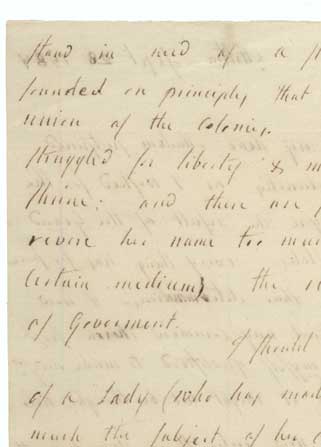 stand in need of a
founded on principles that
union of the Colonies.
struggled for liberty & m
shrine: and there are
revere her name too muc
Certain medium, the
of Goverment.
I should
of a Lady (who has mad
much the subject of her